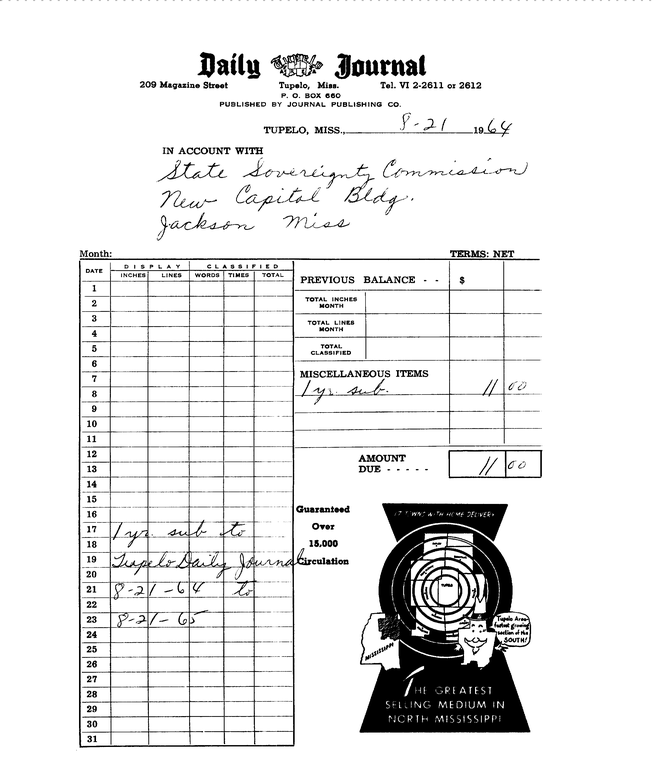 Daily Tupelo Journal
209 Magazine Street Tupelo, Miss. Tel. VI 2-2611 or 2612
P. O. BOX 660
PUBLISHED BY JOURNAL PUBLISHING CO.
TUPELO, MISS., 8-21 1964
IN ACCOUNT WITH
State Sovereignty Commission
New Capitol Bldg.
Jackson Miss
Month: TERMS: NET
DATE DISPLAY CLASSIFIED
INCHES LINES WORDS TIMES TOTAL
PREVIOUS BALANCE - - $
1
2
TOTAL INCHES MONTH
3
TOTAL LINES MONTH
4
5
TOTAL CLASSIFIED
6
7
MISCELLANEOUS ITEMS
8
1 yr. sub. 11 00
9
10
11
12
AMOUNT DUE - - - - - 11 00
13
14
15
16
17 1 yr. sub to
18
19 Tupelo Daily Journal
20
21 8-21-64 to
22
23 8-21-65
24
25
26
27
28
29
30
31
Guaranteed
Over
15,000
Circulation
17 TOWNS WITH HOME DELIVERY
TUPELO
MISSISSIPPI
Tupelo Area-
fastest growing
section of the
SOUTH!
THE GREATEST
SELLING MEDIUM IN
NORTH MISSISSIPPI